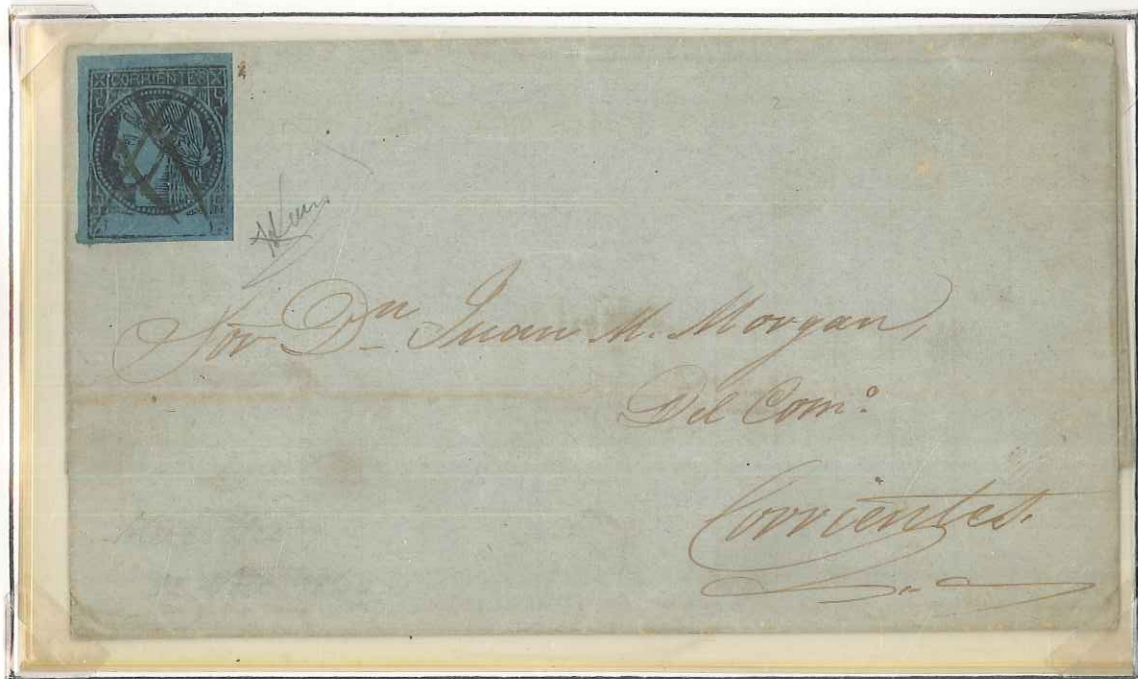 CORRIENTES
Sor Dn Juan M. Morgan,
Del Comº.
Corrientes.